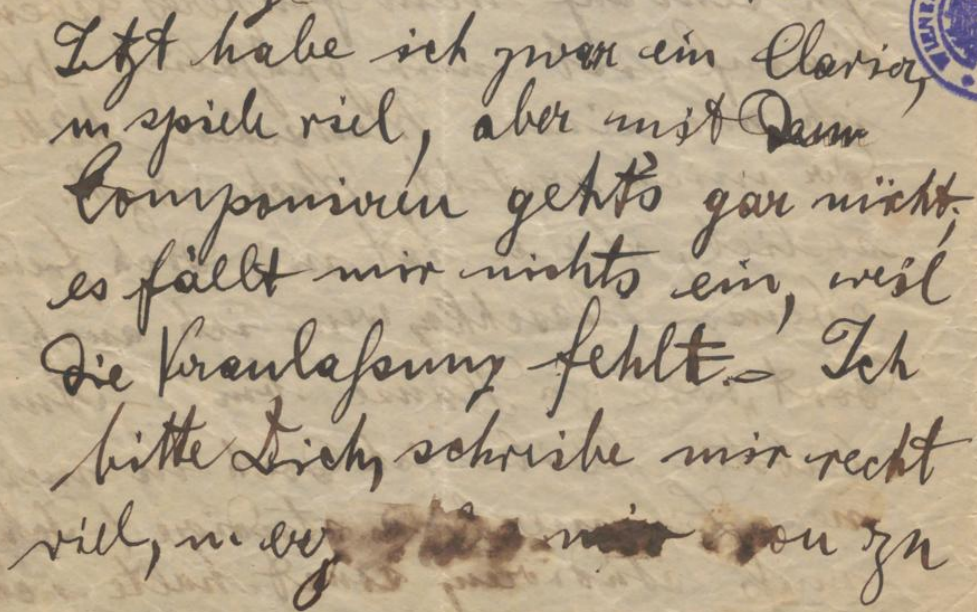 Jetzt habe ich zwar ein Clavier,
u spiele viel, aber mit Dem
Componiren geht's gar nicht,
es fällt mir nichts ein, weil
die Veranlaßung fehlt. – Ich
bitte Dich, schreibe mir recht
viel, u. mir von zu